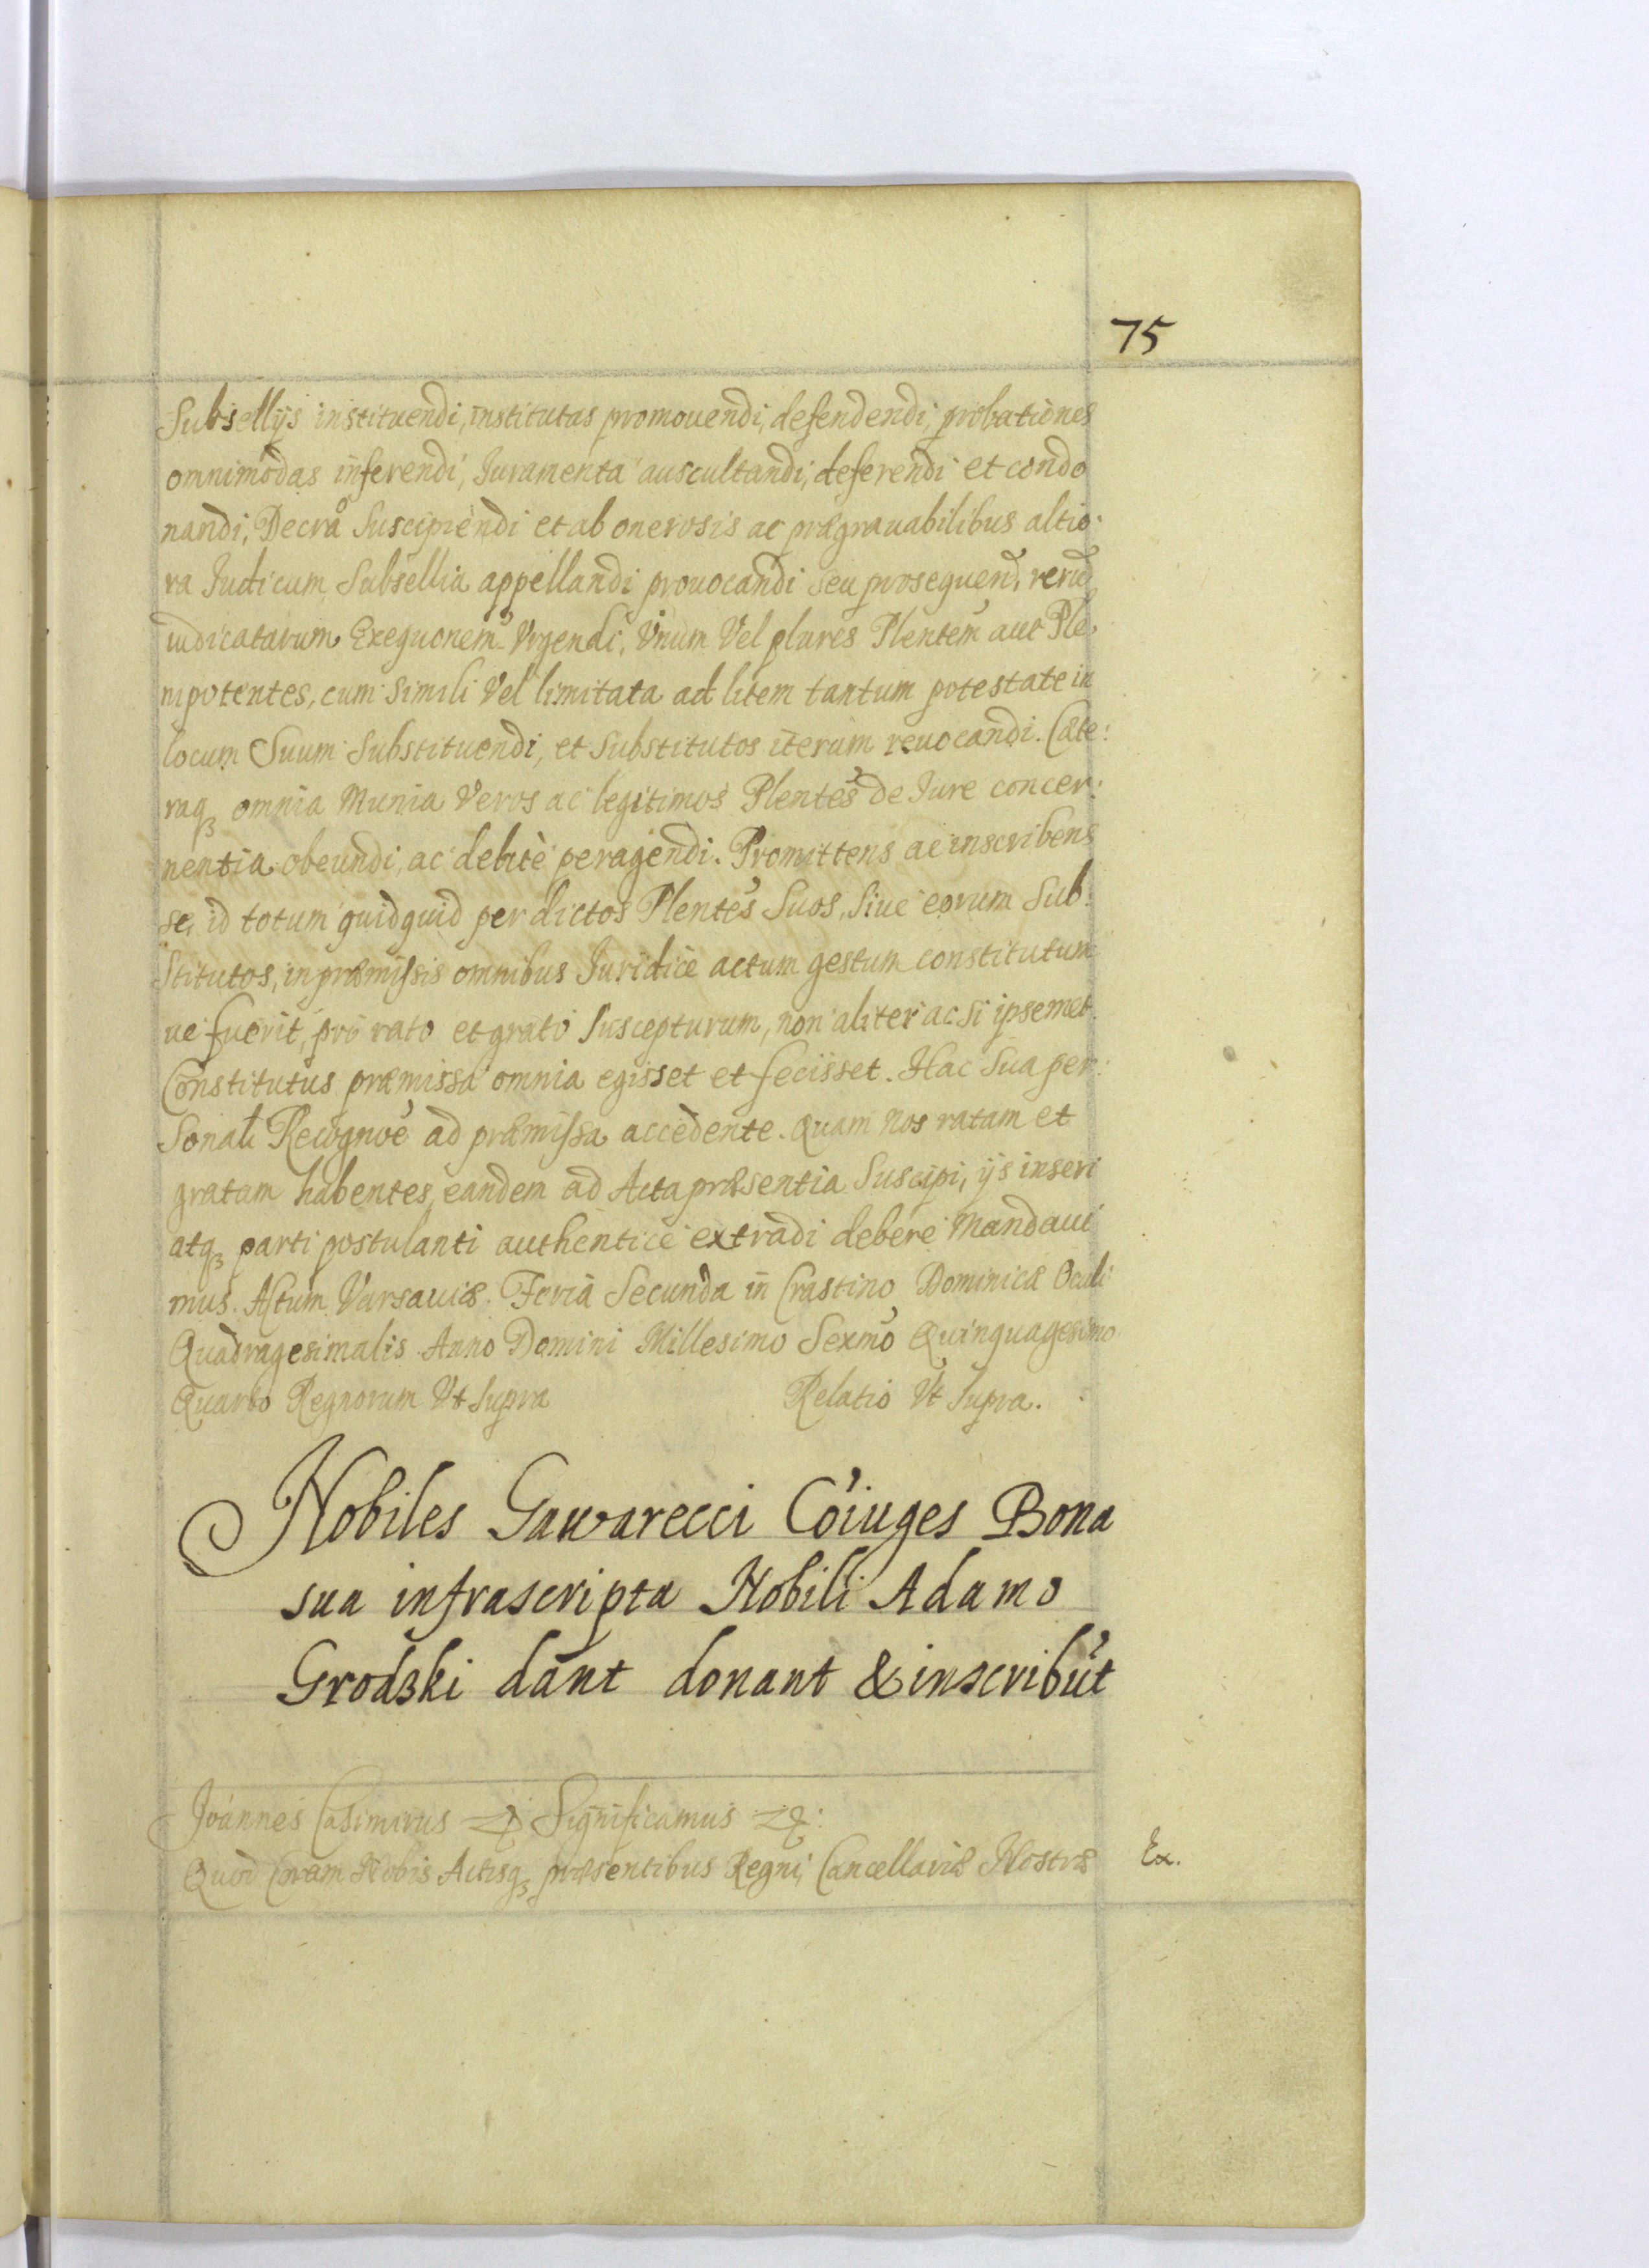 75
Subsellijs instituendi, institutas promouendi, defendendi, probationes
omnimodas inferendi, Iuramenta auscultandi, deferendi et condo
nandi, Decra Suscipiendi et ab onerosis ac prægrauabilibus altio:
ra Iudicum Subsellia appellandi prouocandi seu prosequend, rerū
iudicatarum Exequonem Vrgendi, Vnum Vel plures Plentem aut Ple:
nipotentes, cum simili Vel limitata ad litem tantum potestate in
locum Suum Substituendi, et Substitutos iterum reuocandi. Cæte:
raq3 omnia Munia Veros ac legitimos Plentes de Iure concer:
nentia obeundi, ac debitè peragendi. Promittens ac inscribens
se, id totum quidquid per dictos Plentes Suos, Siue eorum Sub:
stitutos, in præmissis omnibus Iuridicè actum gestum constitutum
ue fuerit, pro rato et grato Suscepturum, non aliter ac si ipsemet
Constitutus præmissa omnia egisset et fecisset. Hac Sua per:
Sonali Recognoe ad præmissa accedente. Quam Nos ratam et
gratam habentes, eandem ad Acta præsentia Suscipi, ijs inseri
atq3 parti postulanti authenticè extradi debere Mandaui
mus. Actum Varsauiæ. Feria Secunda in Crastino Dominicæ Oculi
Quadragesimalis Anno Domini Millesimo Sexmo Quinquagesimo
Quarto Regnorum Vt Supra Relatio Vt Supra.
Nobiles Gawarecci Cóiuges Bona
sua infrascripta Nobili Adamo
Grodzki dant donant & inscribūt
Ioannes Casimirus Significamus
Quod Coram Nobis Actisq3 præsentibus Regni Cancellariæ Nostræ
Ex.